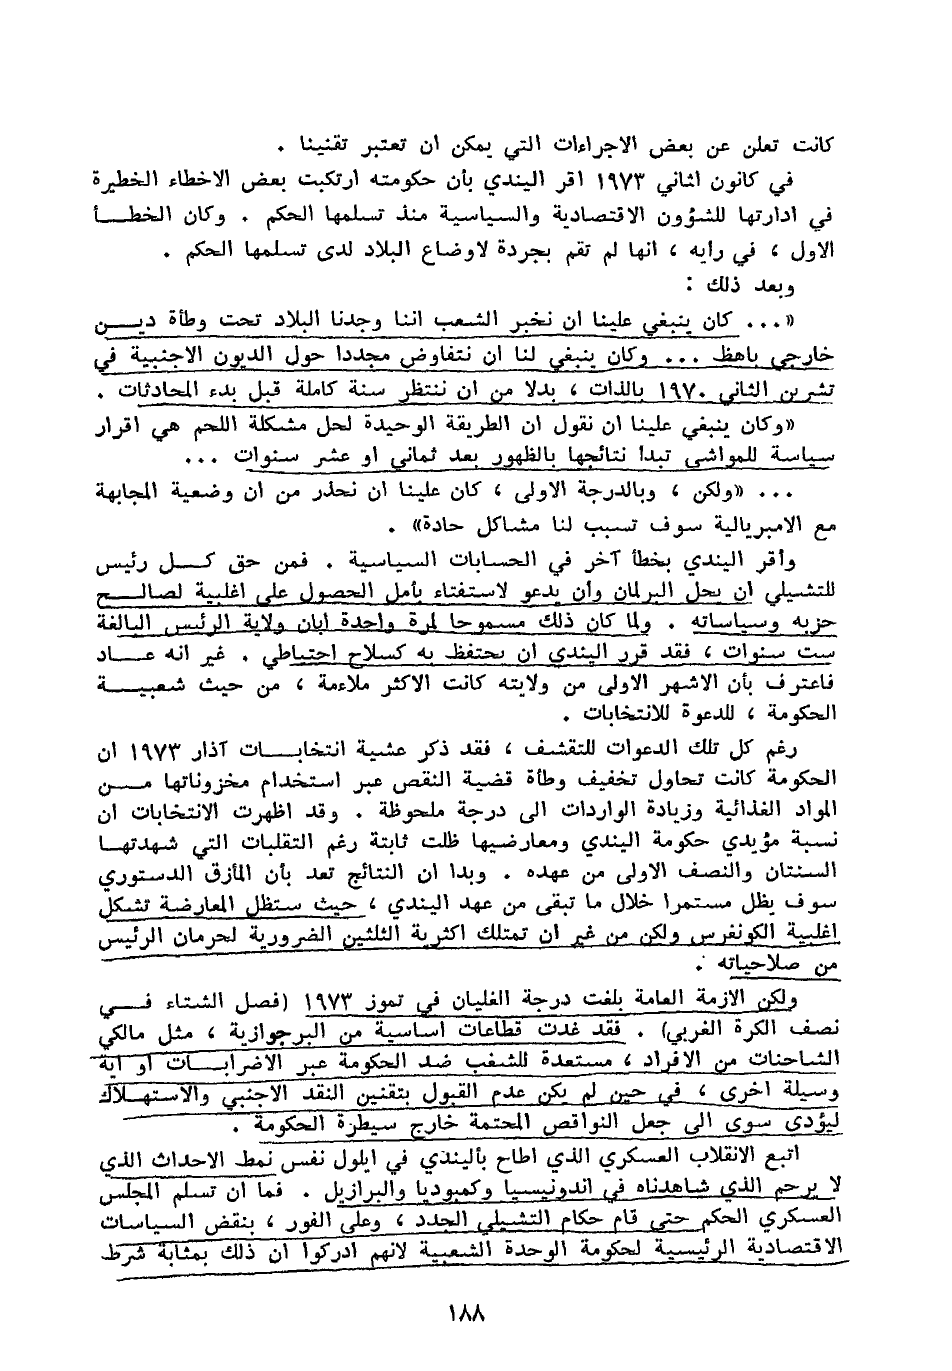 كانت تعلن عن بعض الاجراءات التي يمكن ان تعتبر تقنينا .
في كانون اثاني ١٩٧٣ اقر اليندي بأن حكومته ارتكبت بعض الاخطاء الخطيرة
في ادارتها للشؤون الاقتصادية والسياسية منذ تسلمها الحكم . وكان الخطــأ
الاول ، في رأيه ، انها لم تقم بجردة لاوضاع البلاد لدى تسلمها الحكم .
وبعد ذلك :
«... كان ينبغي علينا ان نخبر الشعب اننا وجدنا البلاد تحت وطأة ديــن
خارجي باهظ ... وكان ينبغي لنا ان نتفاوض مجددا حول الديون الاجنبية في
تشرين الثاني ١٩٧٠ بالذات ، بدلا من ان ننتظر سنة كاملة قبل بدء المحادثات .
«وكان ينبغي علينا ان نقول ان الطريقة الوحيدة لحل مشكلة اللحم هي اقرار
سياسة للمواشي تبدأ نتائجها بالظهور بعد ثماني او عشر سنوات ...
... «ولكن ، وبالدرجة الاولى ، كان علينا ان نحذر من ان وضعية المجابهة
مع الامبريالية سوف تسبب لنا مشاكل حادة» .
وأقر اليندي بخطأ آخر في الحسابات السياسية . فمن حق كــل رئيس
للتشيلي ان يحل البرلمان وأن يدعو لاستفتاء بأمل الحصول على اغلبية لصالــح
حزبه وسياساته . ولما كان ذلك مسموحا لمرة واحدة ابان ولاية الرئيس البالغة
ست سنوات ، فقد قرر اليندي ان يحتفظ به كسلاح احتياطي . غير انه عــاد
فاعترف بأن الاشهر الاولى من ولايته كانت الاكثر ملاءمة ، من حيث شعبيــة
الحكومة ، للدعوة للانتخابات .
رغم كل تلك الدعوات للتقشف ، فقد ذكر عشية انتخابــات آذار ١٩٧٣ ان
الحكومة كانت تحاول تخفيف وطأة قضية النقص عبر استخدام مخزوناتها مــن
المواد الغذائية وزيادة الواردات الى درجة ملحوظة . وقد اظهرت الانتخابات ان
نسبة مؤيدي حكومة اليندي ومعارضيها ظلت ثابتة رغم التقلبات التي شهدتهــا
السنتان والنصف الاولى من عهده . وبدا ان النتائج تعد بأن المأزق الدستوري
سوف يظل مستمرا خلال ما تبقى من عهد اليندي ، حيث ستظل المعارضة تشكل
اغلبية الكونغرس ولكن من غير ان تمتلك اكثرية الثلثين الضرورية لحرمان الرئيس
من صلاحياته .
ولكن الازمة العامة بلغت درجة الغليان في تموز ١٩٧٣ (فصل الشتاء فــي
نصف الكرة الغربي) . فقد غدت قطاعات اساسية من البرجوازية ، مثل مالكي
الشاحنات من الافراد ، مستعدة للشغب ضد الحكومة عبر الاضرابــات او اية
وسيلة اخرى ، في حين لم يكن عدم القبول بتقنين النقد الاجنبي والاستهــلاك
ليؤدي سوى الى جعل النواقص المحتمة خارج سيطرة الحكومة .
اتبع الانقلاب العسكري الذي اطاح بأليندي في ايلول نفس نمط الاحداث الذي
لا يرحم الذي شاهدناه في اندونيسيا وكمبوديا والبرازيل . فما ان تسلم المجلس
العسكري الحكم حتى قام حكام التشيلي الجدد ، وعلى الفور ، بنقض السياسات
الاقتصادية الرئيسية لحكومة الوحدة الشعبية لانهم ادركوا ان ذلك بمثابة شرط
١٨٨